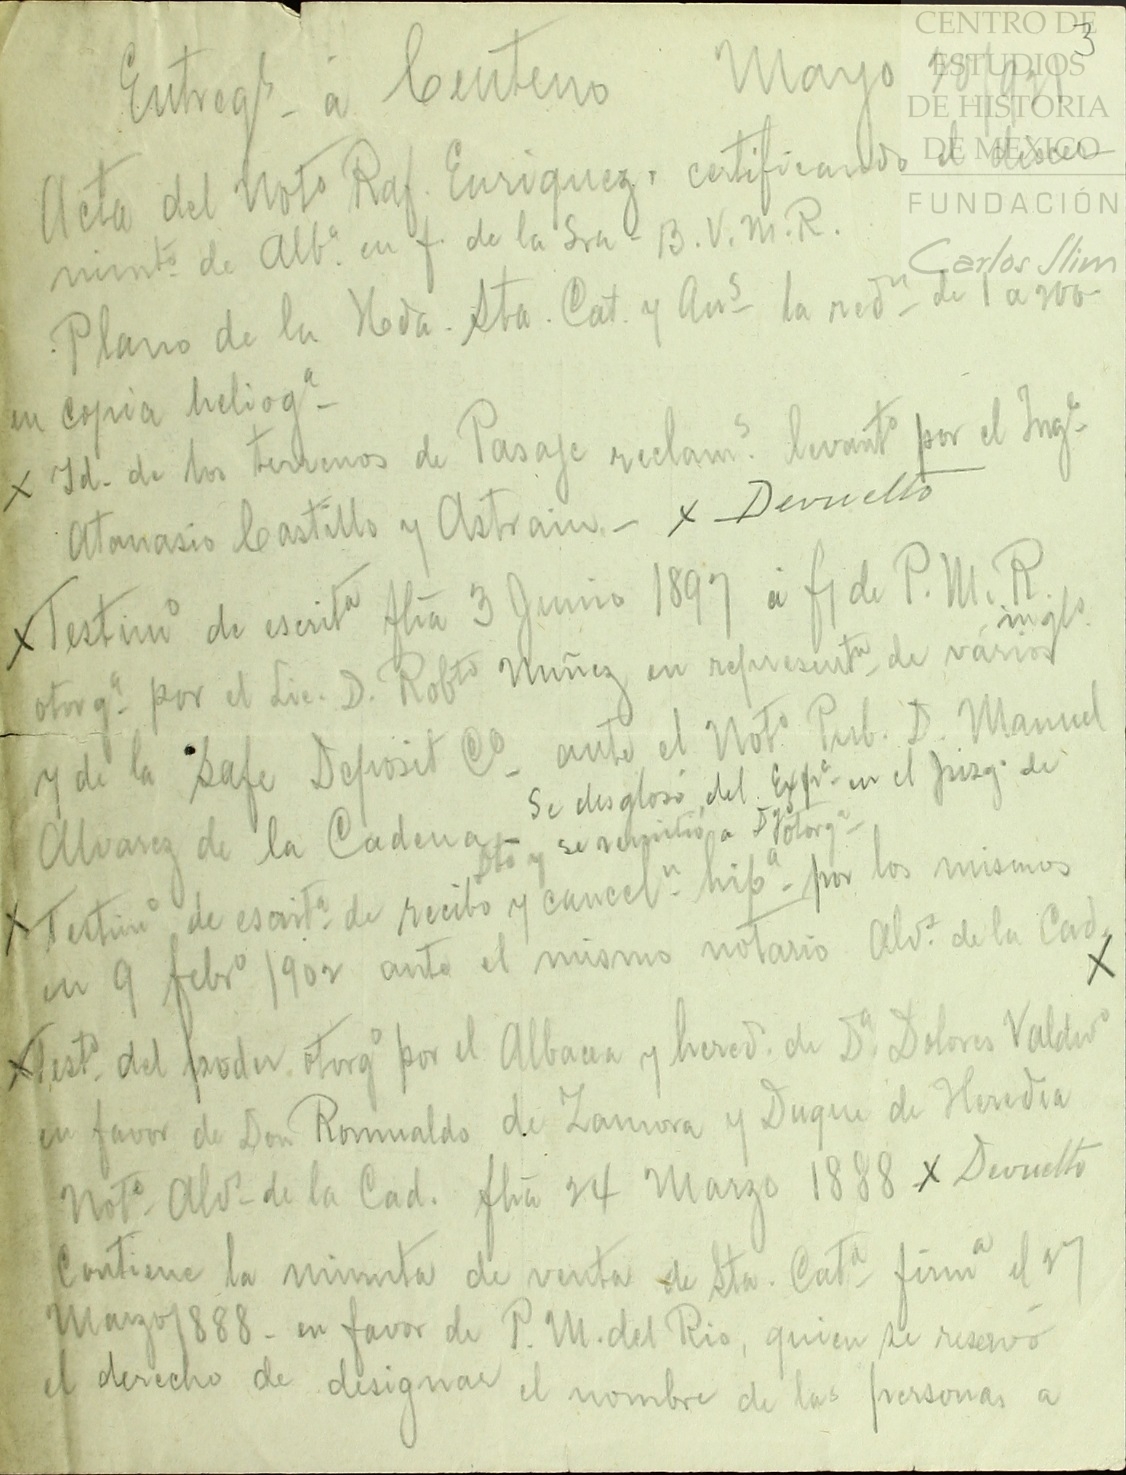 CENTRO DE
ESTUDIOS
DE HISTORIA
DE MEXICO
FUNDACIÓN
Carlos Slim
3
Entregs - á Centeno Mayo
Acta del Noto Raf. Enriquez, certificando el discer-
nimto de Alba en f. de la Sra - B. V. M. R.
Plano de la Hda. Sta. Cat. y Ans - la redn - de 1 a 200-
en copia helioga -
x Id. de los terrenos de Pasaje reclams. levanto por el Ingo -
Atanasio Castillo y Astrain. - x Devuelto
x Testimo de escrita fha 3 Junio 1897 á f/ de P. M. R.
otorga - por el Lic. D. Robto Nuñez en representa - de varios ingls.
y de la Safe Deposit Co - ante el Noto Pub. D. Manuel
Alvarez de la Cadena - Se desglosó del Expte en el Juzgo de
Dto y se remitió a
x Testimo de escrita de recibo y canceln hipa - por los mismos
en 9 febro 1902 ante el mismo notario Alvz. de la Cad. x
x Testo del poder otorgo por el Albacea y hered. de Da. Dolores Valdivo
en favor de Don Romualdo de Zamora y Duque de Heredia
Noto - Alvz - de la Cad. fha 24 Marzo 1888 x Devuelto
Contiene la minuta de venta de Sta. Cata - firma el 27
Marzo/1888 - en favor de P. M. del Rio, quien se reservó
el derecho de designar el nombre de las personas a